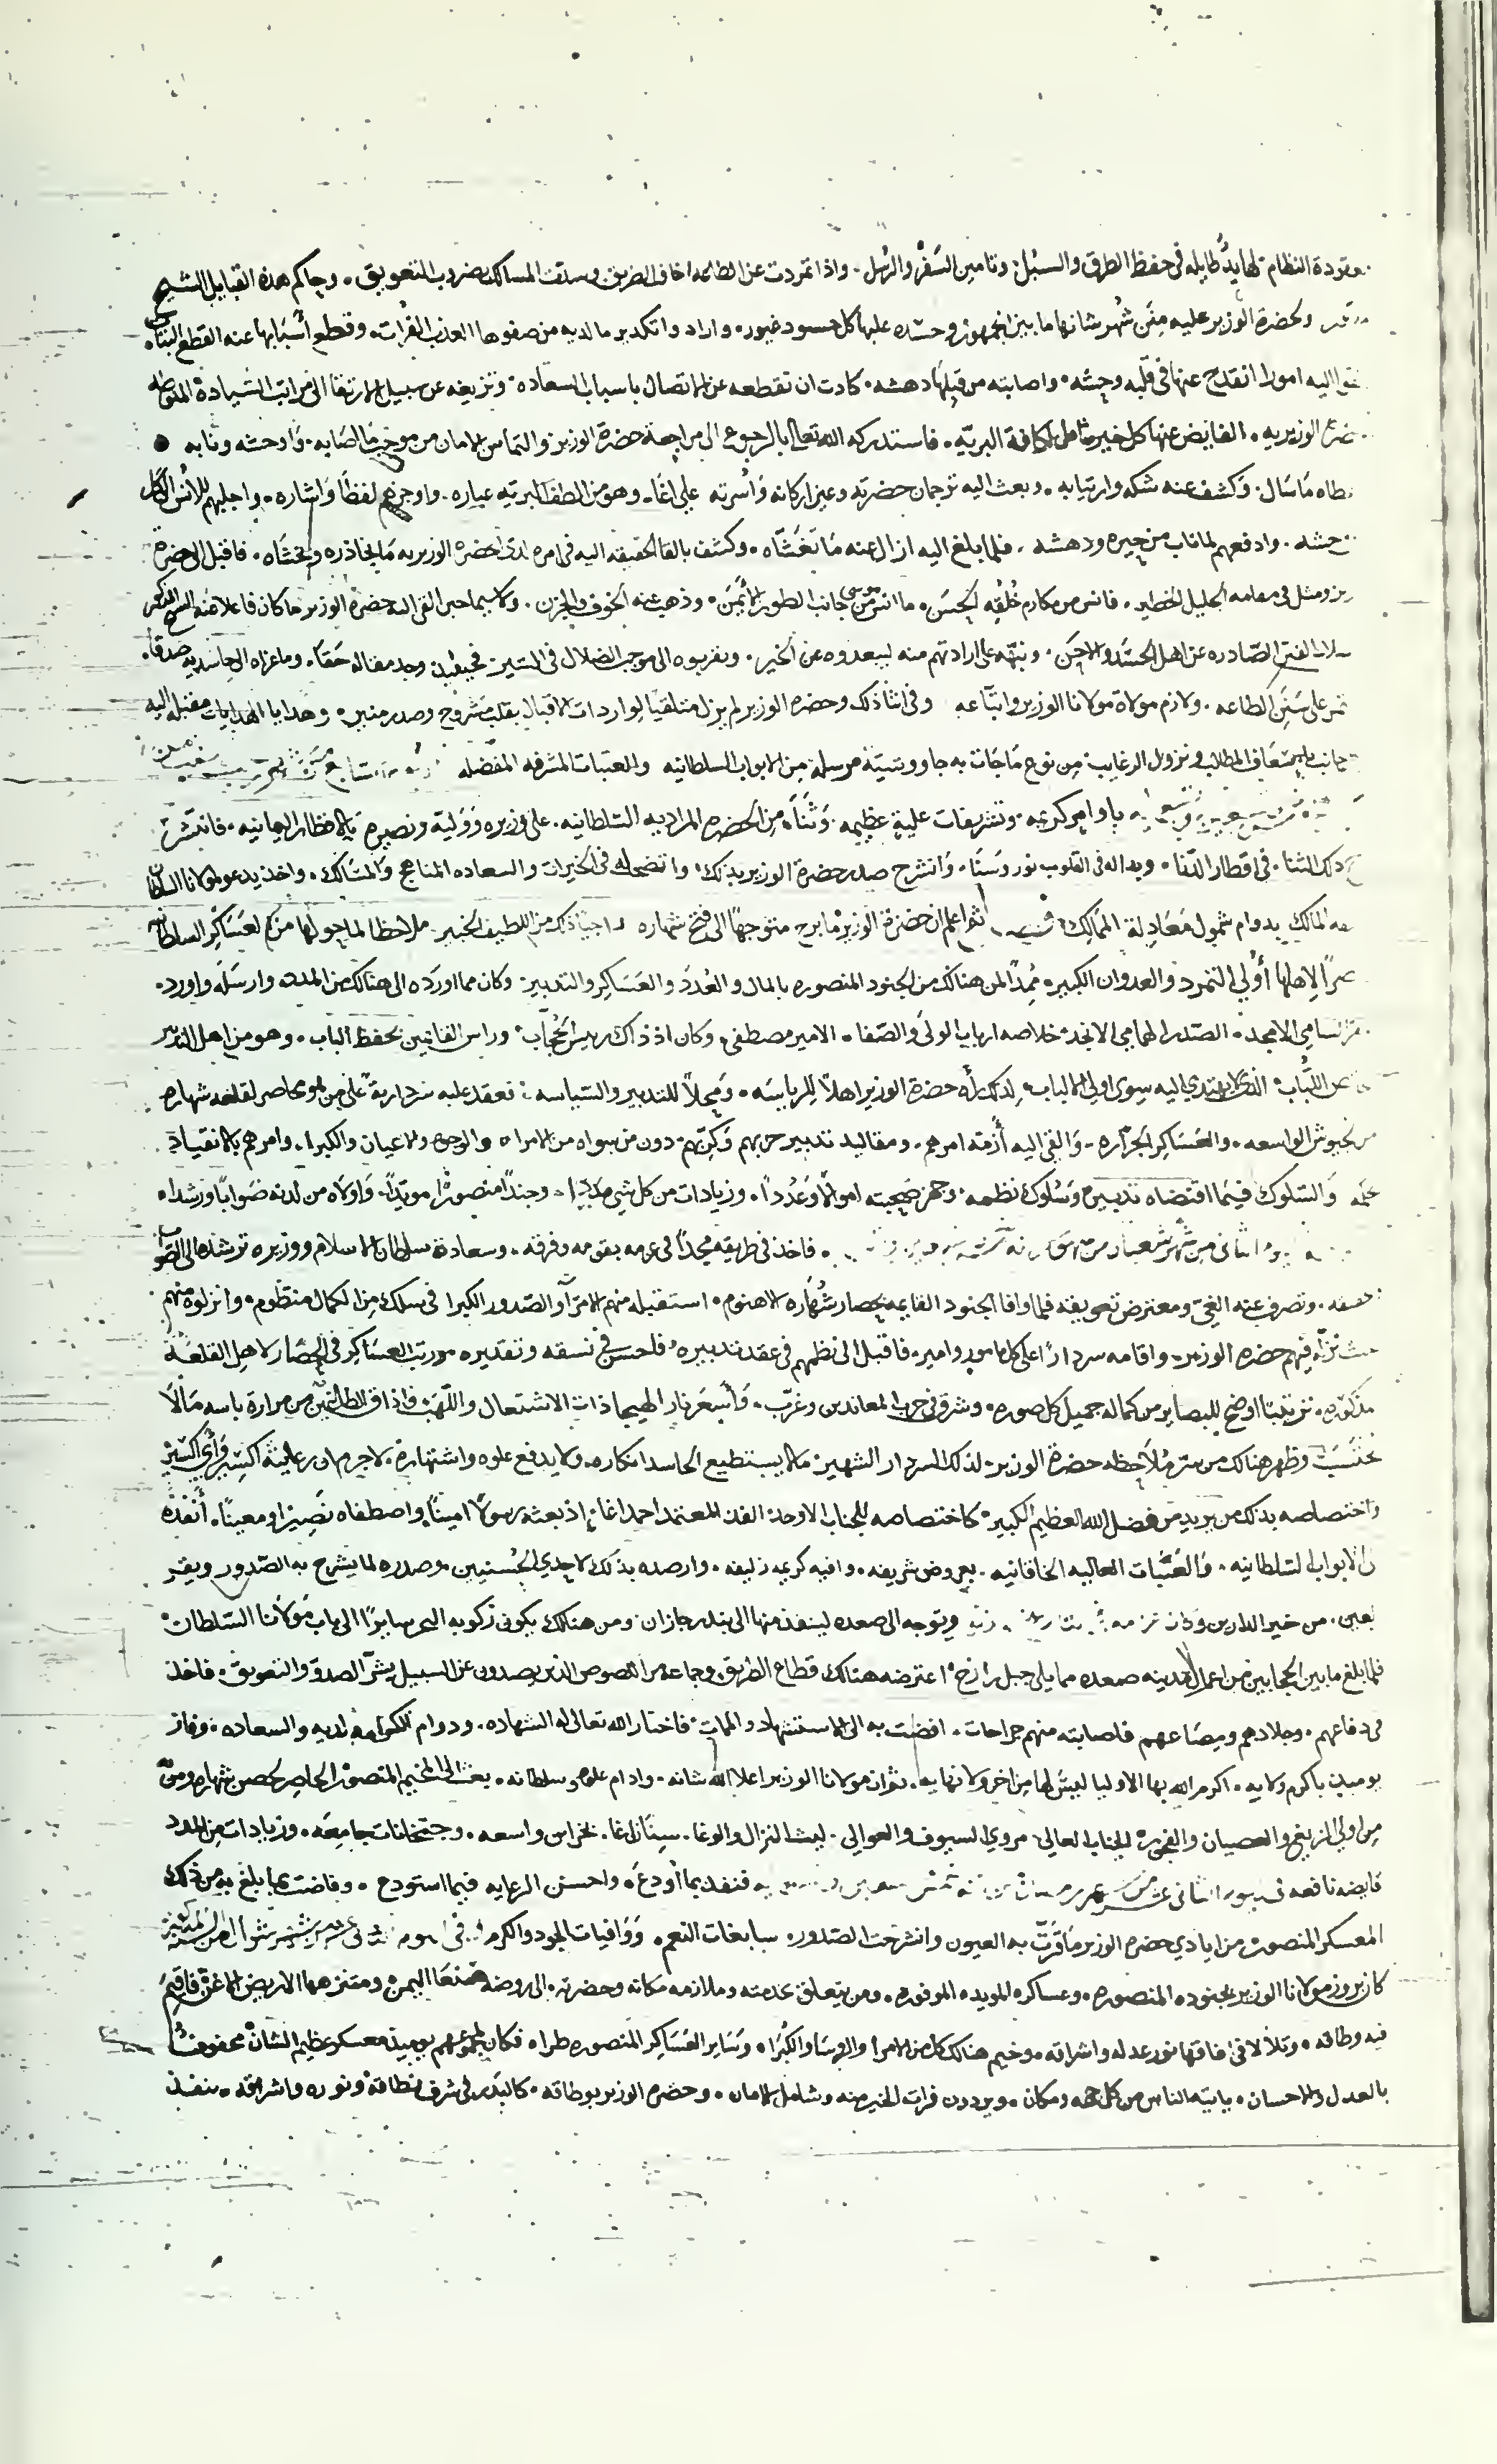 معقودة النظام لها يد طايله في حفظ الطرق والسبل وتامين السفر والرسل واذا تمردت عن الطاعه اخاف الطريق وسلقت المسالك بضروب التعويق وحاكم هذه القبايل الشيخ
ولحضرة الوزير عليه منن شهر شانها ما بين الجمهور وحسّده عليها كل حسود غيور واراد وا تكدير ما لديه من صفوها العذب الفرات وقطع اسبابها عنه القطع البتات
اليه امورا انقدح عنها في قلبه وحشه واصابته من قبلها دهشه كادت ان تقطعه عن الاتصال باسباب السعاده وتزيغه عن سبيل الارتقا الى مراتب السيادة
الوزيريه الفايض عنها كل خير شامل لكافة البريّه فاستدركه الله تعالى بالرجوع الى مراجعة حضرة الوزير والتماس الامان من موجب ما اصابه واوحشه ونابه
ما سال وكشف عنه شكه وارتيابه وبعث اليه ترجمان حضرته وعين اركانه واسرته علي اغا وهو من الطف البريه عباره واوجزهم لفظا واشاره واجلبهم للانس
وادفعهم لما ناب من حيره ودهشه فلما بلغ اليه ازال عنه ما تغشاه وكشف بالقا الحقيقه اليه في امره لدى الحضره الوزيريه ما يحاذره ويخشاه فاقبل الى حضرة
ومثل في مقامه الجليل الخطير فانس من مكارم خُلُقِه الحسن ما انس موسى من جانب الطور الايمن وذهب عنه الخوف والحزن ولا سيما حين القى اليه حضرة الوزير ما كان فاعلا عنه الشيخ
الفتن الصّادره عن اهل الحسد والاحن ونبّهه على ارادتهم منه ليبعدوه عن الخير ويقربوه الى موجب الضلال في السير وجد مقاله حقا وما عزاه الى حاسديه صدقا
على سنن الطاعه ولازم موالاة مولانا الوزير واتباعه وفي اثنا ذلك وحضرة الوزير لم يزل متلقيا لواردات الاقبال بقلب مشروح وصدر منير وهدايا الهدايات مقبله اليه
المطالب ونزول الرغايب من نوع ما جات به جاووشية مرسله من الابواب السلطانيه والعتبات المشرفه المفضله
باوامر كريمه وتشريفات علية عظيمه وثناء من الحضره المراديه السلطانيه على وزيره ووليه ونصيره بالاقطار اليمانيه فانتشر
ذلك الثنا في اقطار الدنا وبدا له في القلوب نور وسنا وانشرح صدر حضرة الوزير بذلك واتضح له في الخيرات والسعاده المناهج والمسالك واخذ يدعو لمولانا السلطان
المالك بدوام شمول معادلة الممالك ثم اعلم ان حضرة الوزير ما برح متوجهًا الى فتح شهاره راجيا ذلك من اللطيف الخبير ملاحظا لما حولها من العساكر السلطانيه
لاهلها أولي التمرد والعدوان الكبير ممدا لمن هنالك من الجنود المنصوره بالمال والعدد والعساكر والتدبير وكان مما اورده الى هنالك من المدد وارسله واورد
السامي الامجد الصدر الهمامي الانجد خلاصه ارباب الولى والصفا الامير مصطفى وكان اذ ذاك رييس الحجاب وراس القايمين بحفظ الباب وهو من اهل التدبير
اللباب الذي لا يهتدي اليه سوى اولي الالباب لذلك رأه حضرة الوزير اهلا للرياسه ومحلاً للتدبير والسياسه فعقد عليه سرداريةً على من هو محاصر لقلعه شهاره
الواسعه والعساكر الجراره والقى اليه أزمّه امرهم ومقاليد تدبير حربهم وكرّهم دون من سواه من الامراء والوجوه والاعيان والكبرا وامرهم بالانقياد
والسلوك فيما اقتضاه تدبيره وسلوك نظمه وجهز صحبته اموالاً وعددا وزيادات من كل شي مددا وجندًا منصورًا مويّدا واولاه من لدنه صوابا ورشدا
الثاني من شهر شعبان فاخذ في طريقه مجدًا في عزمه بقومه وفرقه وسعادة سلطان الاسلام ووزيره ترشده الى الصواب
وتصرف عنه الغي ومعترض تعويقه فلما وافا الجنود القايمه بحصار شهاره الاهنوم استقبله منهم الامرآء والصدور الكبرا في سلك من الكمال منتظوم وانزلوه منهم
فيهم حضره الوزير واقامه سردارًا على كل مامور وامير فاقبل الى نظمهم في عقد تدبيره فاحسن في نسقه وتقديره ورتب العساكر في الحصار لاهل القلعة
ترتيبًا اوضح للبصاير من كماله جميل كل صوره وشرق في حرب المعاندين وغرّب واسعر نار الهيجا ذات الاشتعال واللهب واذاق الظالمين من مرارة باسه مالا
يحتسب وظهر هنالك من سر ملاحظه حضرة الوزير لذلك السردار الشهير مالا يستطيع الحاسد انكاره ولا يدفع علوه واشتهاره لاجرم ان رعايته اكسير واي اكسير
واختصاصه بذلك من يريد من فضل الله العظيم الكبير كاختصاصه للجناب الاوحد الفذ المعتمد احمد اغا اذ بعثه رسولاً امينا واصطفاه نصيرا ومعينا أنفذه
الى الابواب السلطانيه والعتبات العاليه الخاقانيه بعروض شريفه وافيه كريمه زليفه وارصده بذلك لاحدى الحسنيين وصدره لما يشرح به الصّدور ويقر
العين من خير الدارين وكان عزمه ويتوجه الى صعده لينفذ منها الى بندر جازان ومن هنالك يكون ركوبه البحر سايرًا الى باب مولانا السلطان
فلما بلغ مابين الحجابين من اعمال مدينه صعده مما يلي جبل رازح اعترضه هنالك قطاع الطريق وجماعه من اللصوص الذين يصدون عن السبيل بشرّ الصد والتعويق فاخذ
في دفاعهم وجلادهم ومصاعهم فاصابته منهم جراحات افضت به الى الاستشهاد والممات فاختار الله تعالى له الشهاده ودوام الكرامه لديه والسعاده وفاز
يوميذ باكرم ولايه اكرم الله بها الاوليا ليس لها من اخر ولا نهايه ثم ان مولانا الوزير اعلا الله شانه وادام علوه وسلطانه بعث الى المخيم المنصور الحاصر لحصن شهاره ومن
من اولي الزيغ والعصيان والفجره الجناب العالي مروي السيوف والعوالي ليث النزال والوغا سنان اغا بخزاين واسعه وجبخانات جامعه وزيادات من المدد
فايضه نافعه في يوم الثاني عشر من شهر رمضان فنفذ بما أودع واحسن الرعايه فيما استودع وفاضت بما بلغ به من ذلك
المعسكر المنصور من ايادي حضره الوزير ما قرّت به العيون وانشرحت الصدور سابغات النعم ووافيات الجود والكرم وفي يوم شهر شوال
كان بروز مولانا الوزير بجنوده المنصوره وعساكره المويده الموفوره ومن يتعلق بخدمته وملازمه مكانه وحضرته الى روضه صنعا اليمن ومتنزهها الاريض الاغن فاقيم
فيه وطاقه وتلالا في افاقها نور عدله واشراقه وخيم هنالك كل من الامرا والروسا والكبرا وساير العساكر المنصوره طرا فكان لمجموعهم يوميذ معسكر عظيم الشان محفوف
بالعدل والاحسان ياتيه الناس من كل جهه ومكان ويردون فرات الخير منه وشامل الامان وحضره الوزير بوطاقه كالبدر في شرف نطاقه ونوره واشراقه ينفذ